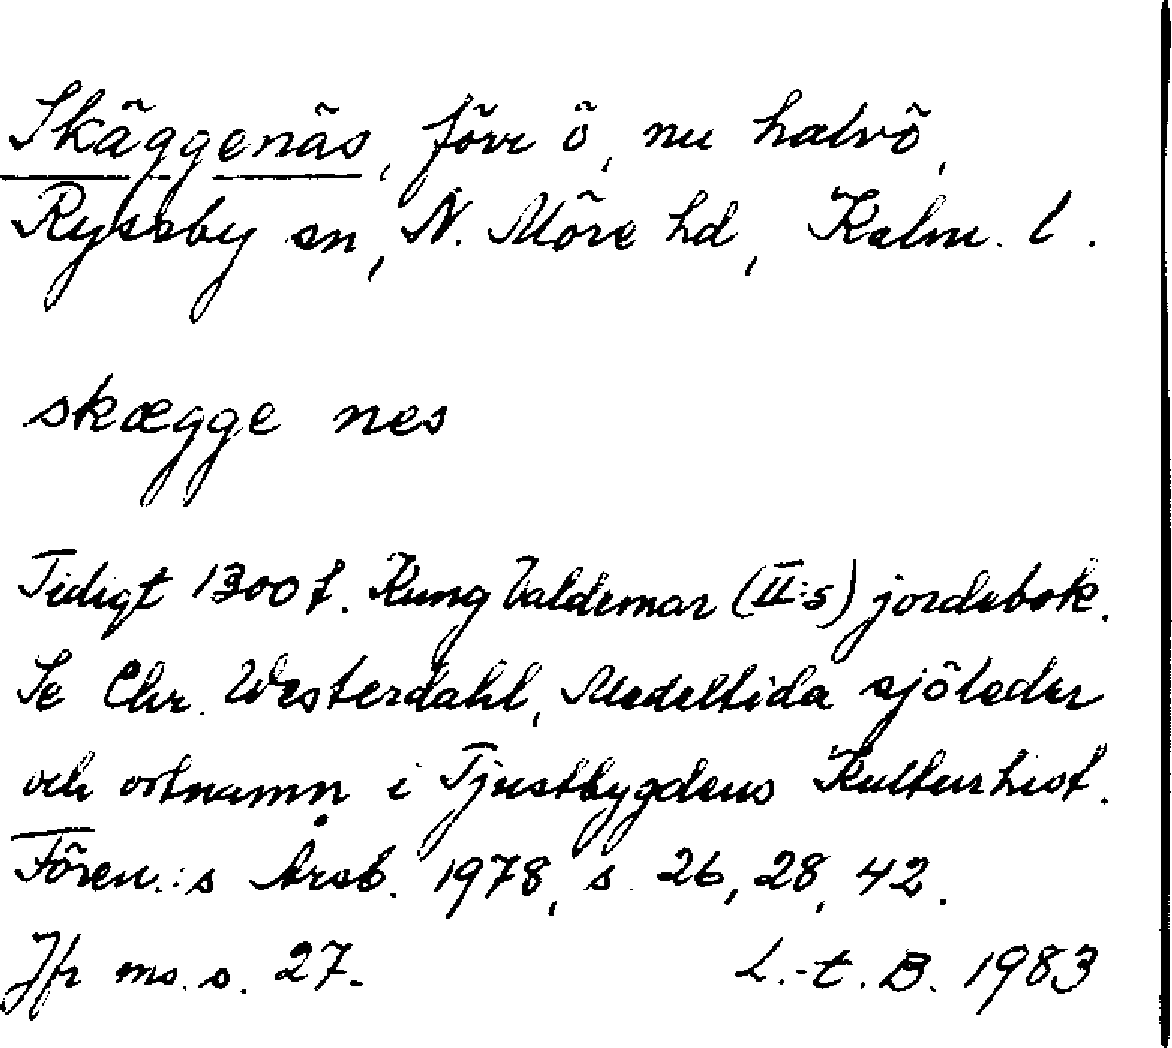 Skäggenäs, förr ö, nu halvö,
Ryssby sn, N. Möre hd, Kalm. l.
skægge nes
Tidigt 1300 t. Kung Valdemar (II:s) jordebok.
Se Chr. Westerdahl, Medeltida sjöleder
och ortnamn i Tjustbygdens Kulturhist.
Fören.:s Årsb. 1978, s. 26, 28, 42.
Jfr ms. s. 27.
L.-t. B. 1983